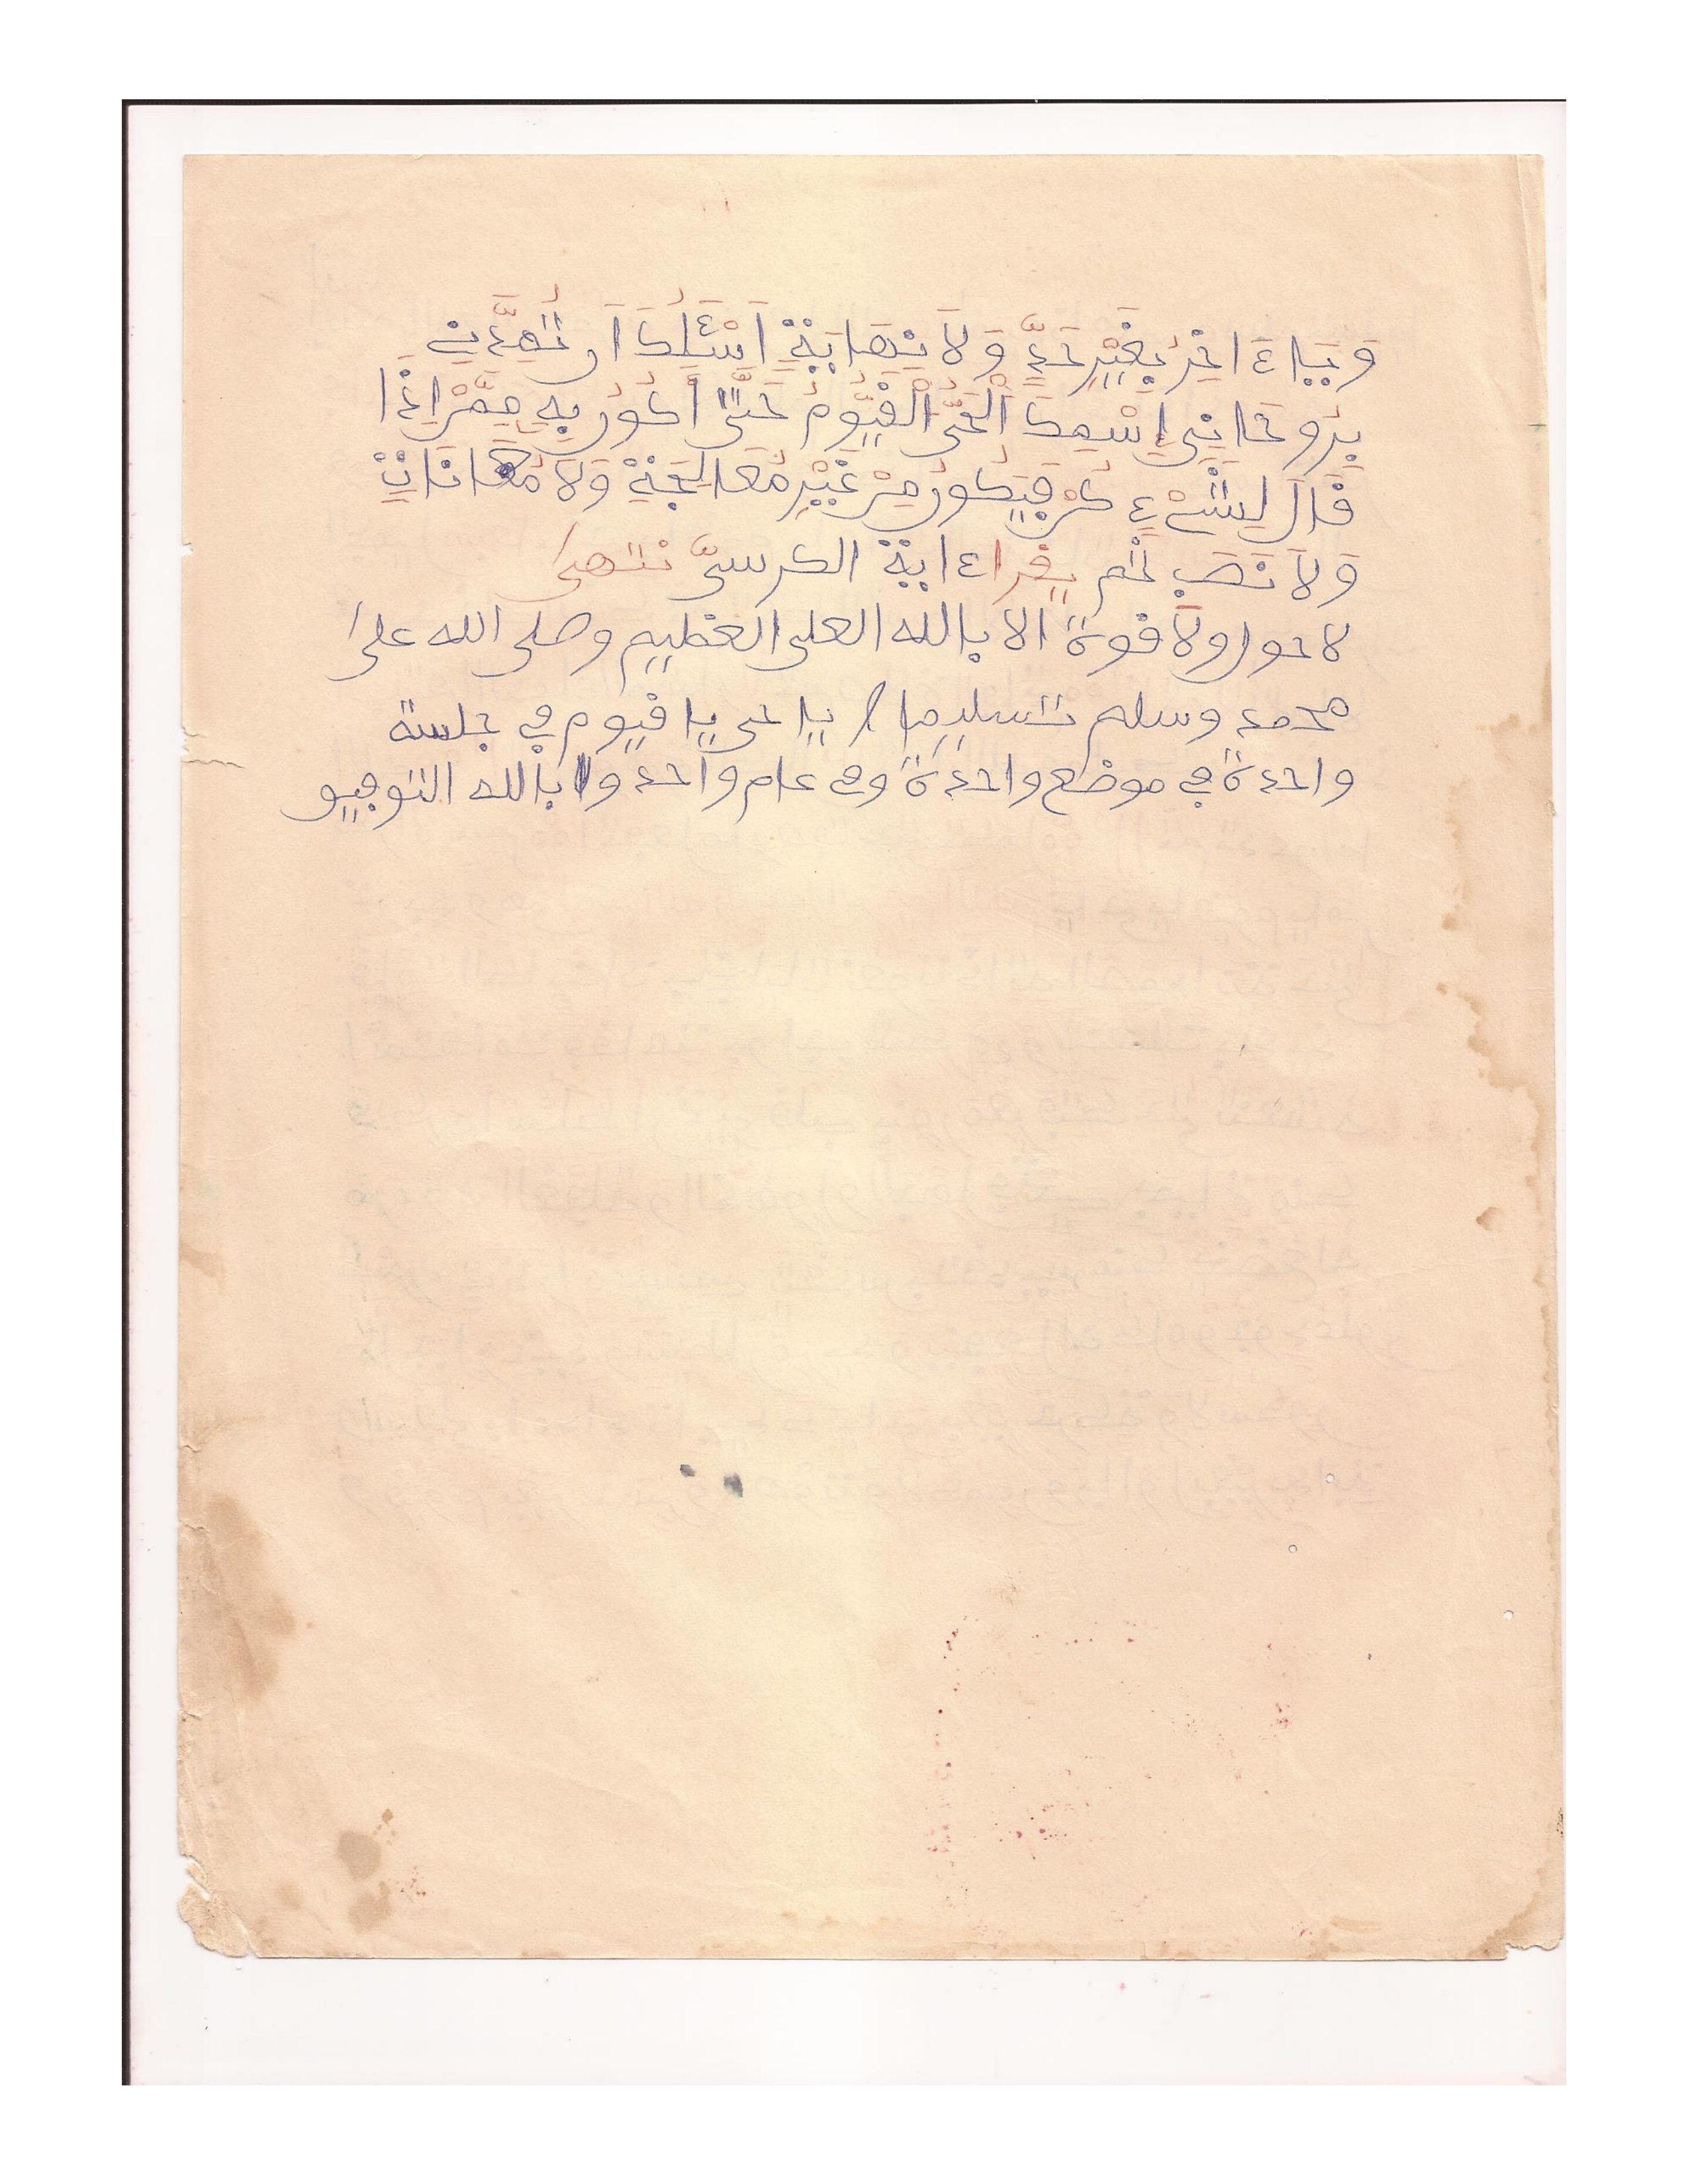 وَيَاءَاخِرُ بِغَيْرِ حَدٍّ وَلَا نِهَايَةٍ اَسْئَلُكَ اَن تُمِدَّنِي
بِرُوحَانِي اِسْمِكَ الْحَيُّ الْقَيُّومُ حَتَّى أَكُونَ بِهِ مِمَّنْ إِذَا
قَالَ لِشَيْءٍ كُنْ فَيَكُونُ مِنْ غَيْرِ مُعَالَجَةٍ وَلَا مُعَانَاتٍ
وَلَا نَصَبٍ ثم يقرا ءاية الكرسيّ نتهى
لا حول ولا قوة الا بالله العلى العظيم وصلى الله على
محمد وسلم تسليما يا حى يا قيوم في جلسة
واحدة في موضع واحدة وفي عام واحد وا بالله التوفيق